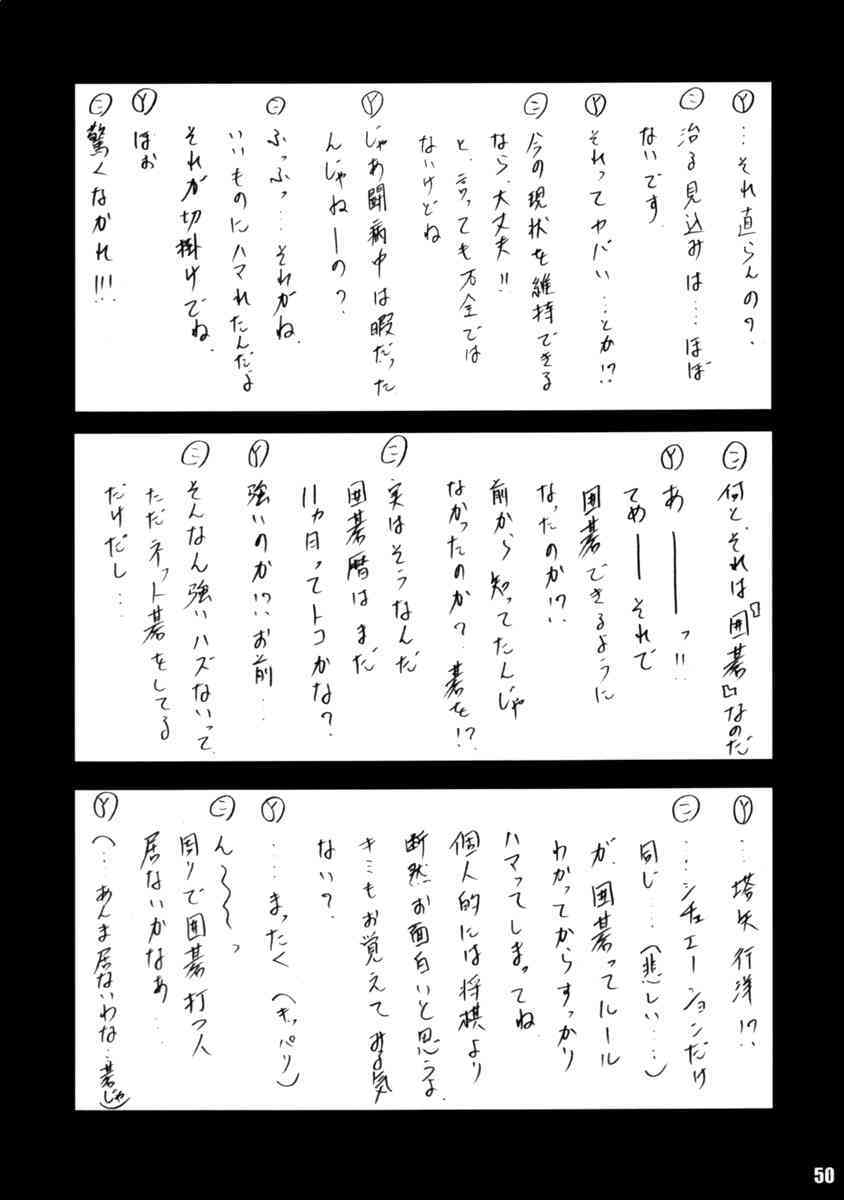 Ⓨ…それ直らんの？
㊁治る見込みは…ほぼ
ないです。
Ⓨそれってヤバい…とか!?
㊁今の現状を維持できる
なら、大丈夫!!
と、言っても万全では
ないけどね
Ⓨじゃあ闘病中は暇だった
んじゃねーの？
㊁ふっふっ…それがね、
いいものにハマれたんだよ
それが切掛けでね、
Ⓨほぉ
㊁驚くなかれ!!!
㊁何と、それは『囲碁』なのだ
Ⓨあーーっ!!
てめーーそれで
囲碁できるように
なったのか!?
前から知ってたんじゃ
なかったのか？碁を!?
㊁実はそうなんだ
囲碁暦はまだ
11ヵ月ってトコかな？
Ⓨ強いのか!?お前…
㊁そんなん強いハズないって、
ただネット碁をしてる
だけだし…
Ⓨ…塔矢行洋!?
㊁……シチュエーションだけ
同じ…（悲しい…）
が、囲碁ってルール
わかってからすっかり
ハマってしまってね、
個人的には将棋より
断然お面白いと思うよ
キミもお覚えてみる気
ない？
Ⓨ……まったく（キッパリ）
㊁ん〜〜〜っ
周りで囲碁打つ人
居ないかなあ…
Ⓨ（…あんま居ないわな…碁じゃ）
50